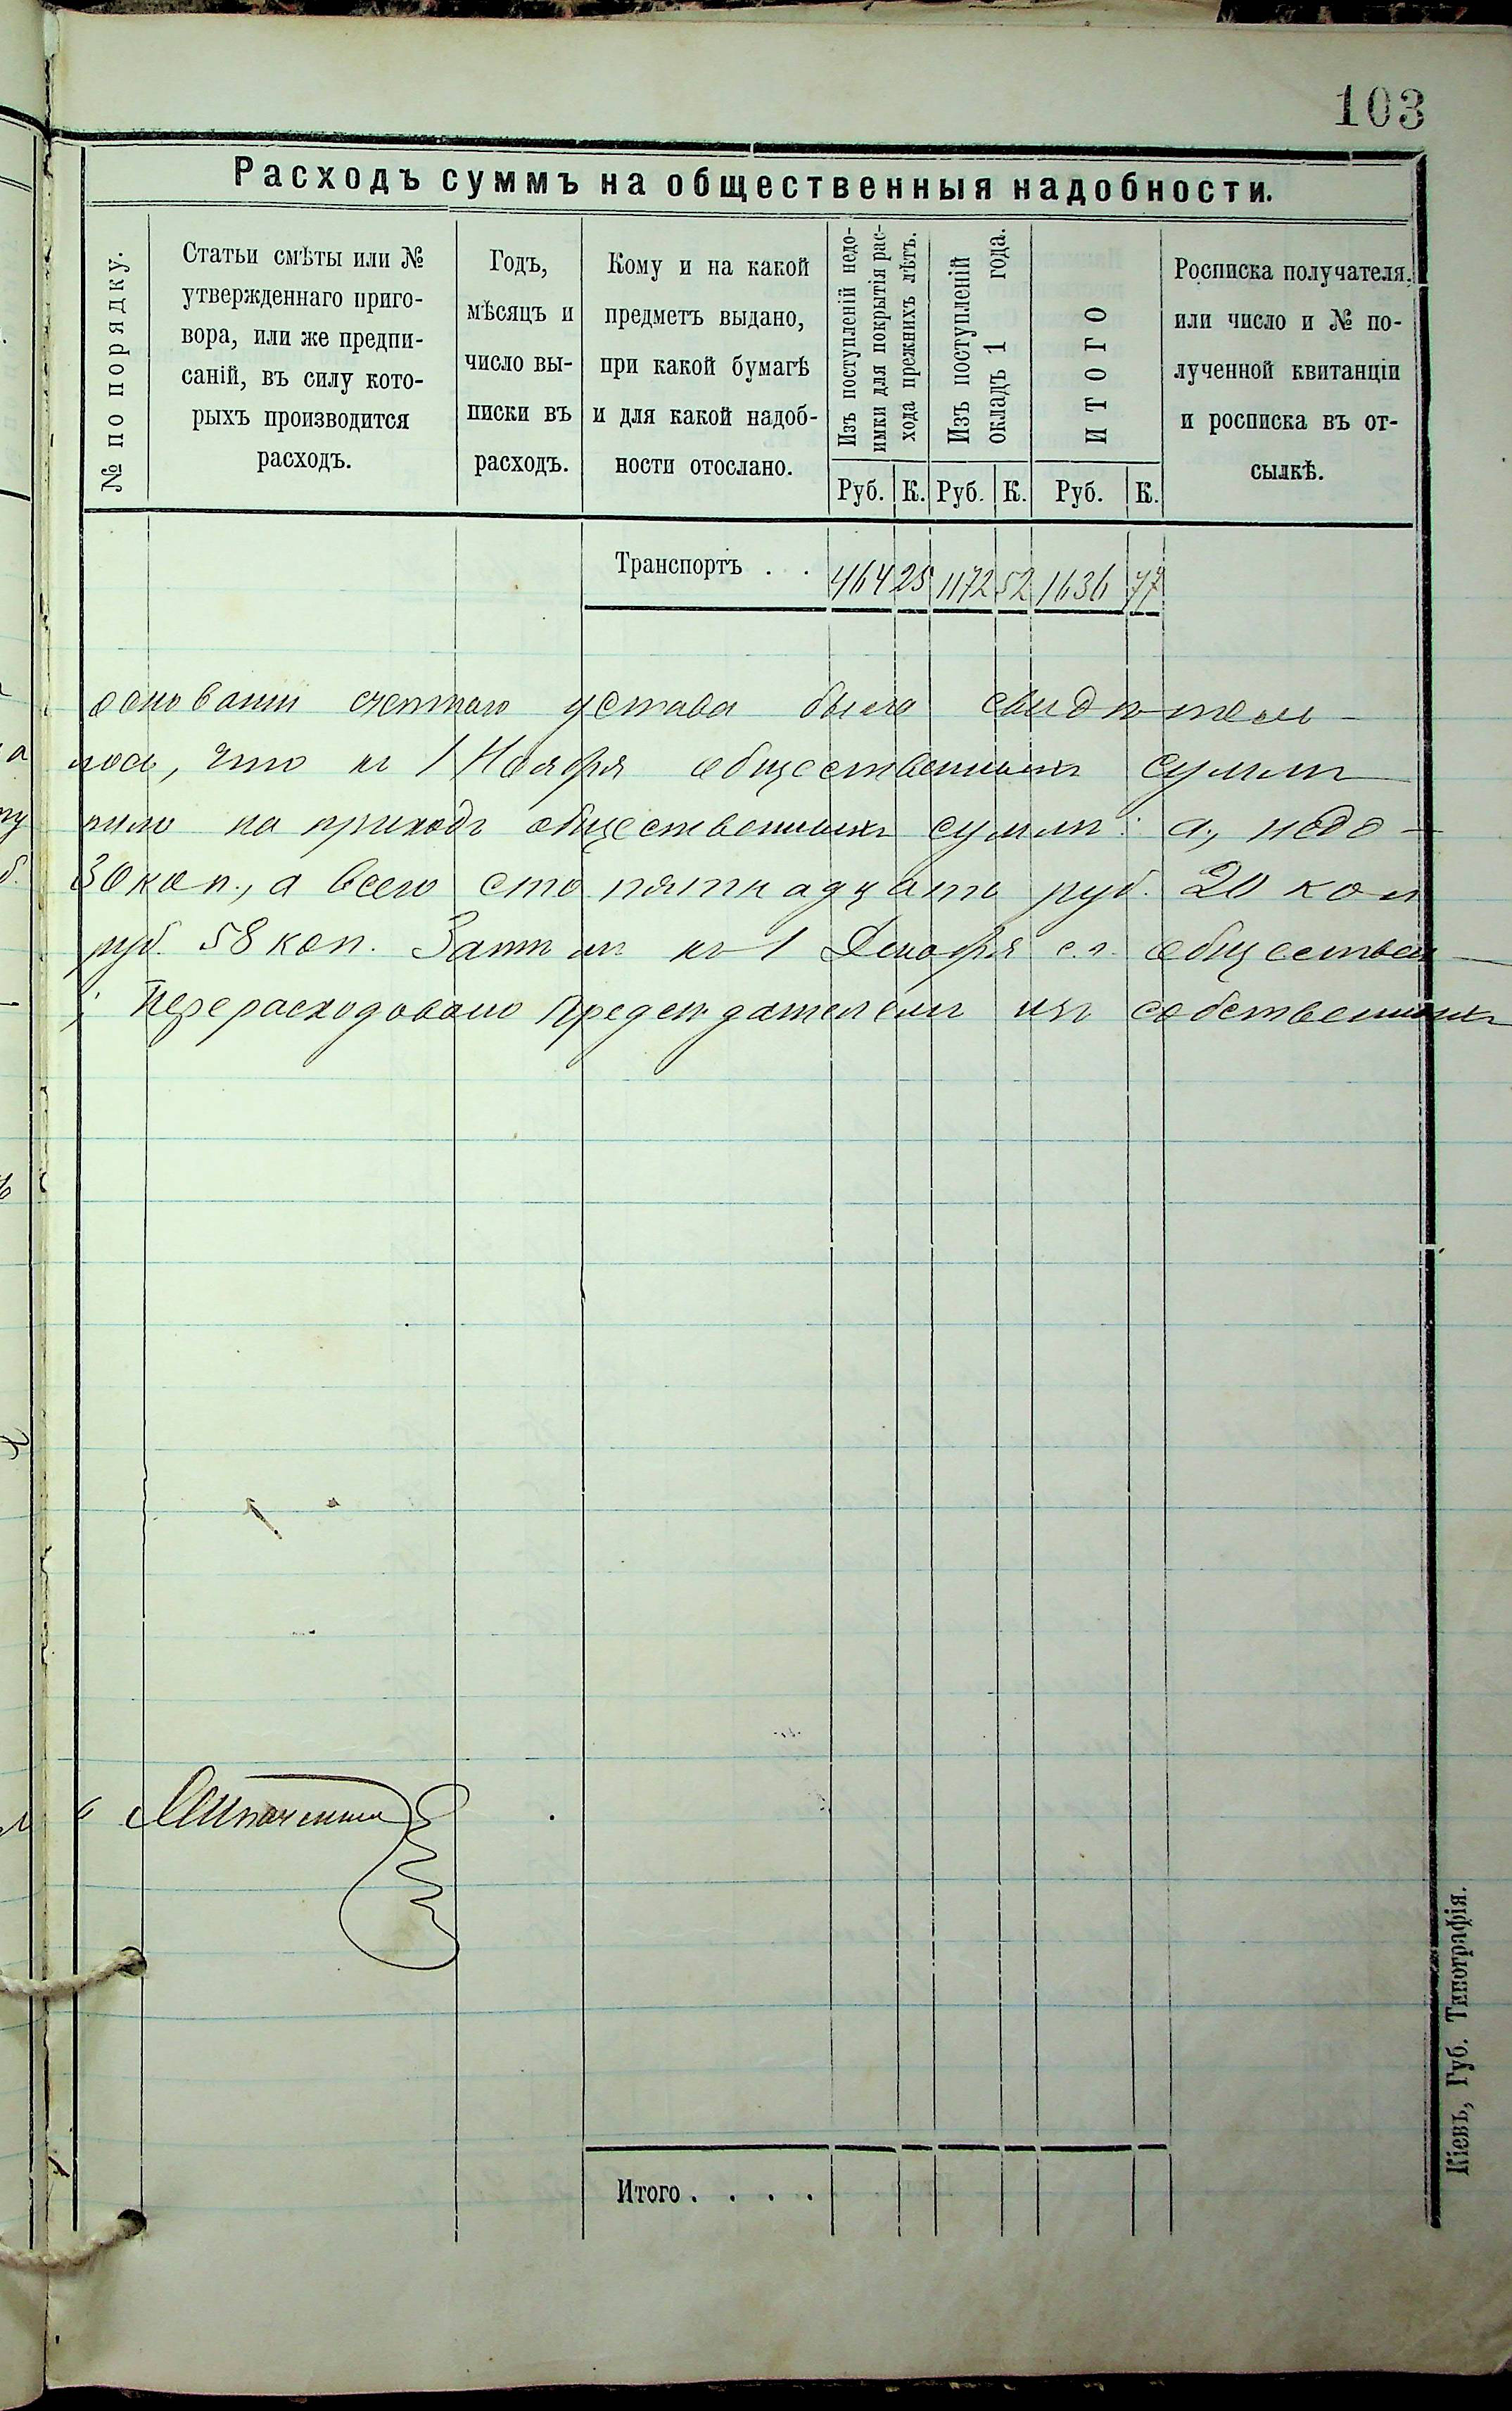 103
Расходъ суммъ на общественныя надобности.
№ по порядку.
Статьи смѣты или №
утвержденнаго приго-
вора, или же предпи-
саній, въ силу кото-
рыхъ производится
расходъ.
Годъ,
мѣсяцъ и
число вы-
писки въ
расходъ.
Кому и на какой
предметъ выдано,
при какой бумагѣ
и для какой надоб-
ности отослано.
Изъ поступленій недо-
имки для покрытія рас-
хода прежнихъ лѣтъ.
Изъ поступленій
окладъ 1 года.
ИТОГО
Росписка получателя.
или число и № по-
лученной квитанціи
и росписка въ от-
сылкѣ.
Руб. К. Руб. К. Руб. К.
Транспортъ . . 464 25 1172 52 1636 77
основаніи счетнаго устава было свидѣтель-
лось, что къ 1 Ноября общественныхъ суммъ
пило на приходъ общественныхъ суммъ: а, недо-
30 коп., а всего сто пятнадцать руб. 20 коп
руб. 58 коп. Затѣмъ къ 1 Декабря с.г. обществен-
Перерасходовано Предсѣдателемъ изъ собственныхъ
Итого . . . .
Кіевъ, Губ. Типографія.